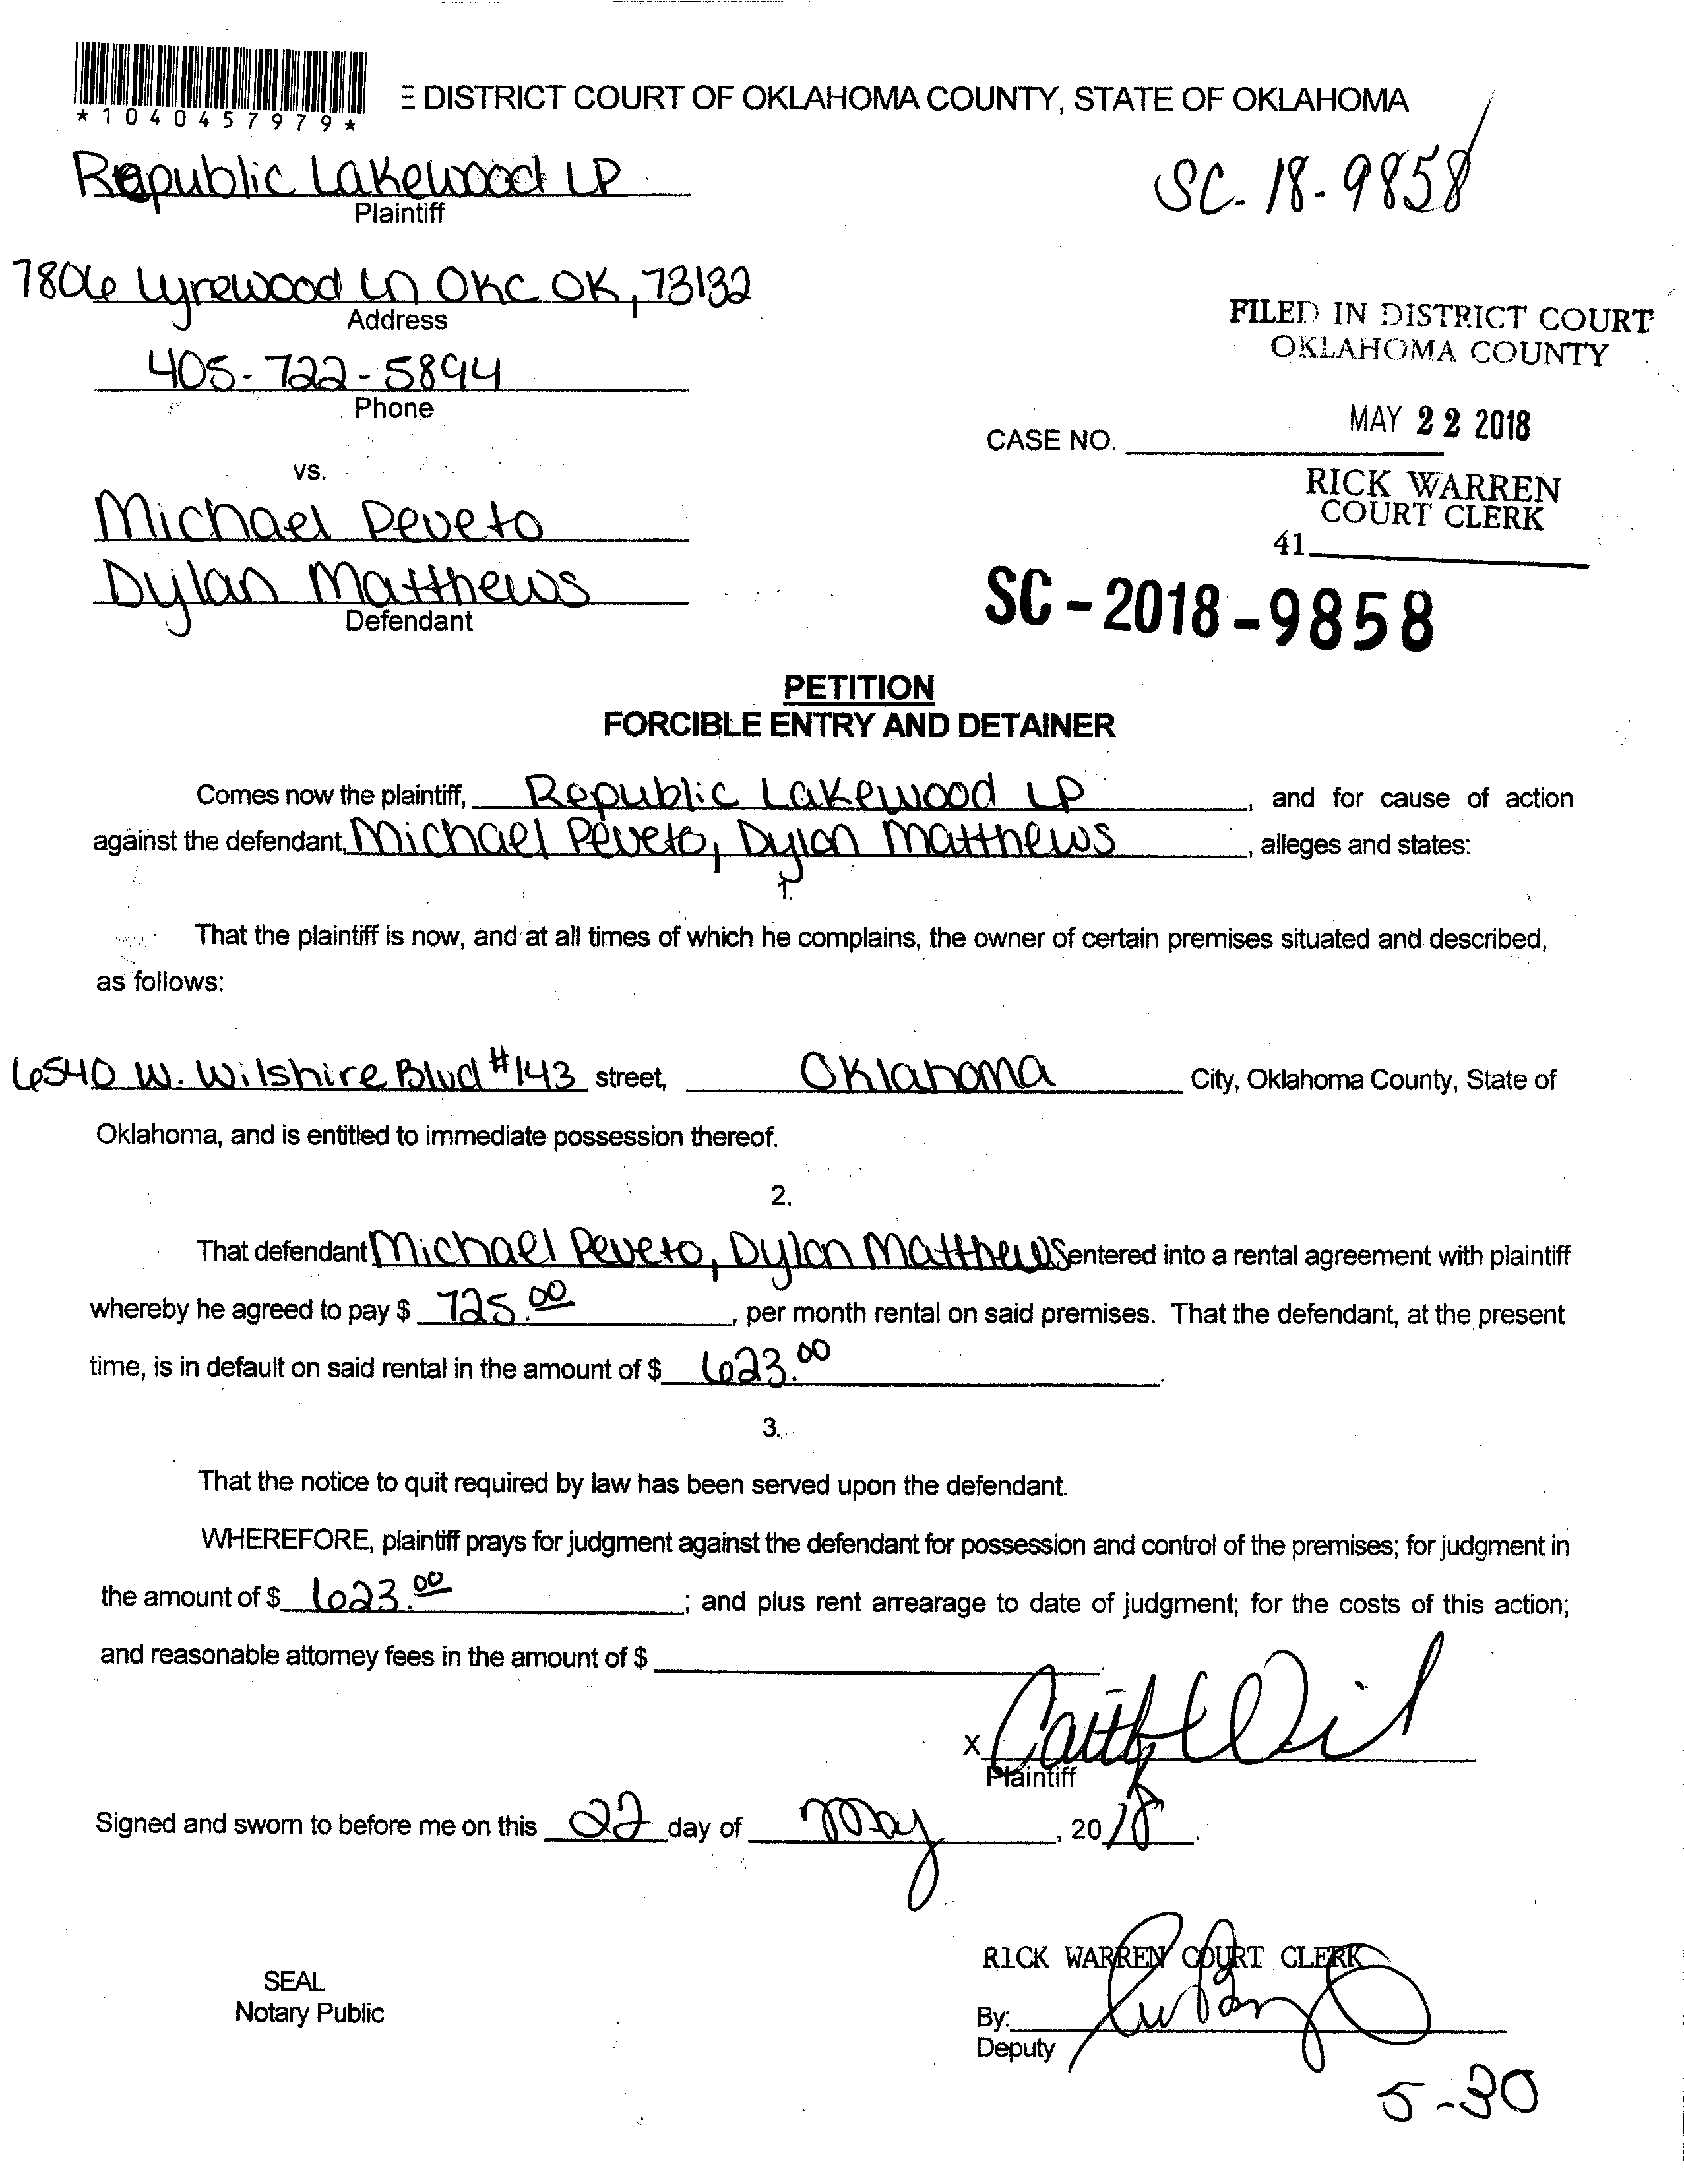 *1040457979*
E DISTRICT COURT OF OKLAHOMA COUNTY, STATE OF OKLAHOMA
Republic Lakewood LP
Plaintiff
SC-18-9858
7806 Lyrewood Ln OKC OK, 73132
Address
405-722-5894
Phone
FILED IN DISTRICT COURT
OKLAHOMA COUNTY
MAY 22 2018
CASE NO.
RICK WARREN
COURT CLERK
41
vs.
Michael Peveto
Dylan Matthews
Defendant
SC-2018-9858
PETITION
FORCIBLE ENTRY AND DETAINER
Comes now the plaintiff, Republic Lakewood LP, and for cause of action
against the defendant, Michael Peveto, Dylan Matthews, alleges and states:
1.
That the plaintiff is now, and at all times of which he complains, the owner of certain premises situated and described,
as follows:
6540 W. Wilshire Blvd #143 street, Oklahoma City, Oklahoma County, State of
Oklahoma, and is entitled to immediate possession thereof.
2.
That defendant Michael Peveto, Dylan Matthews entered into a rental agreement with plaintiff
whereby he agreed to pay $ 725.00, per month rental on said premises. That the defendant, at the present
time, is in default on said rental in the amount of $ 623.00.
3.
That the notice to quit required by law has been served upon the defendant.
WHEREFORE, plaintiff prays for judgment against the defendant for possession and control of the premises; for judgment in
the amount of $ 623.00; and plus rent arrearage to date of judgment; for the costs of this action;
and reasonable attorney fees in the amount of $
X
Plaintiff
Signed and sworn to before me on this 22 day of May, 2018.
RICK WARREN COURT CLERK
SEAL
Notary Public
By:
Deputy
5-30